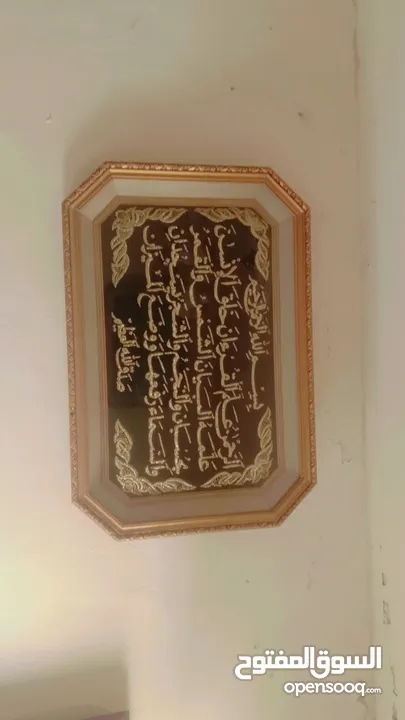 بسم الله الرحمن الرحيم
الرحمن علم القرآن خلق الإنسان
علمه البيان الشمس والقمر
بحسبان والنجم والشجر يسجدان
والسماء رفعها ووضع الميزان
صدق الله العظيم
السوق المفتوح
opensooq.com